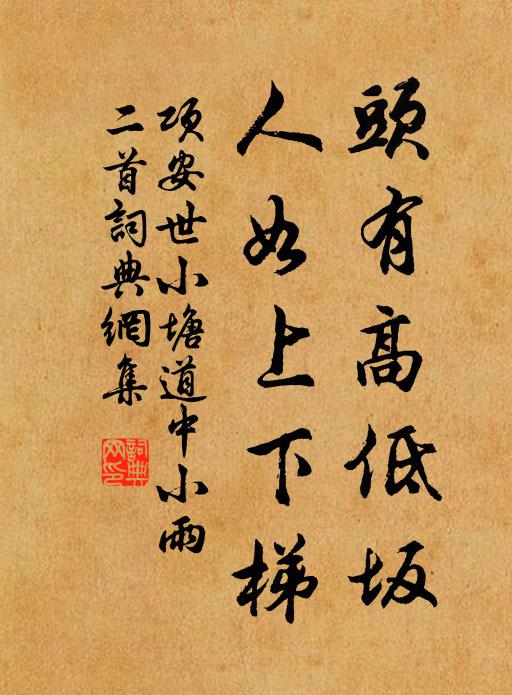 頭有高低坂
人如上下梯
項安世小塘道中小雨
二首詞典網集
詞典网印